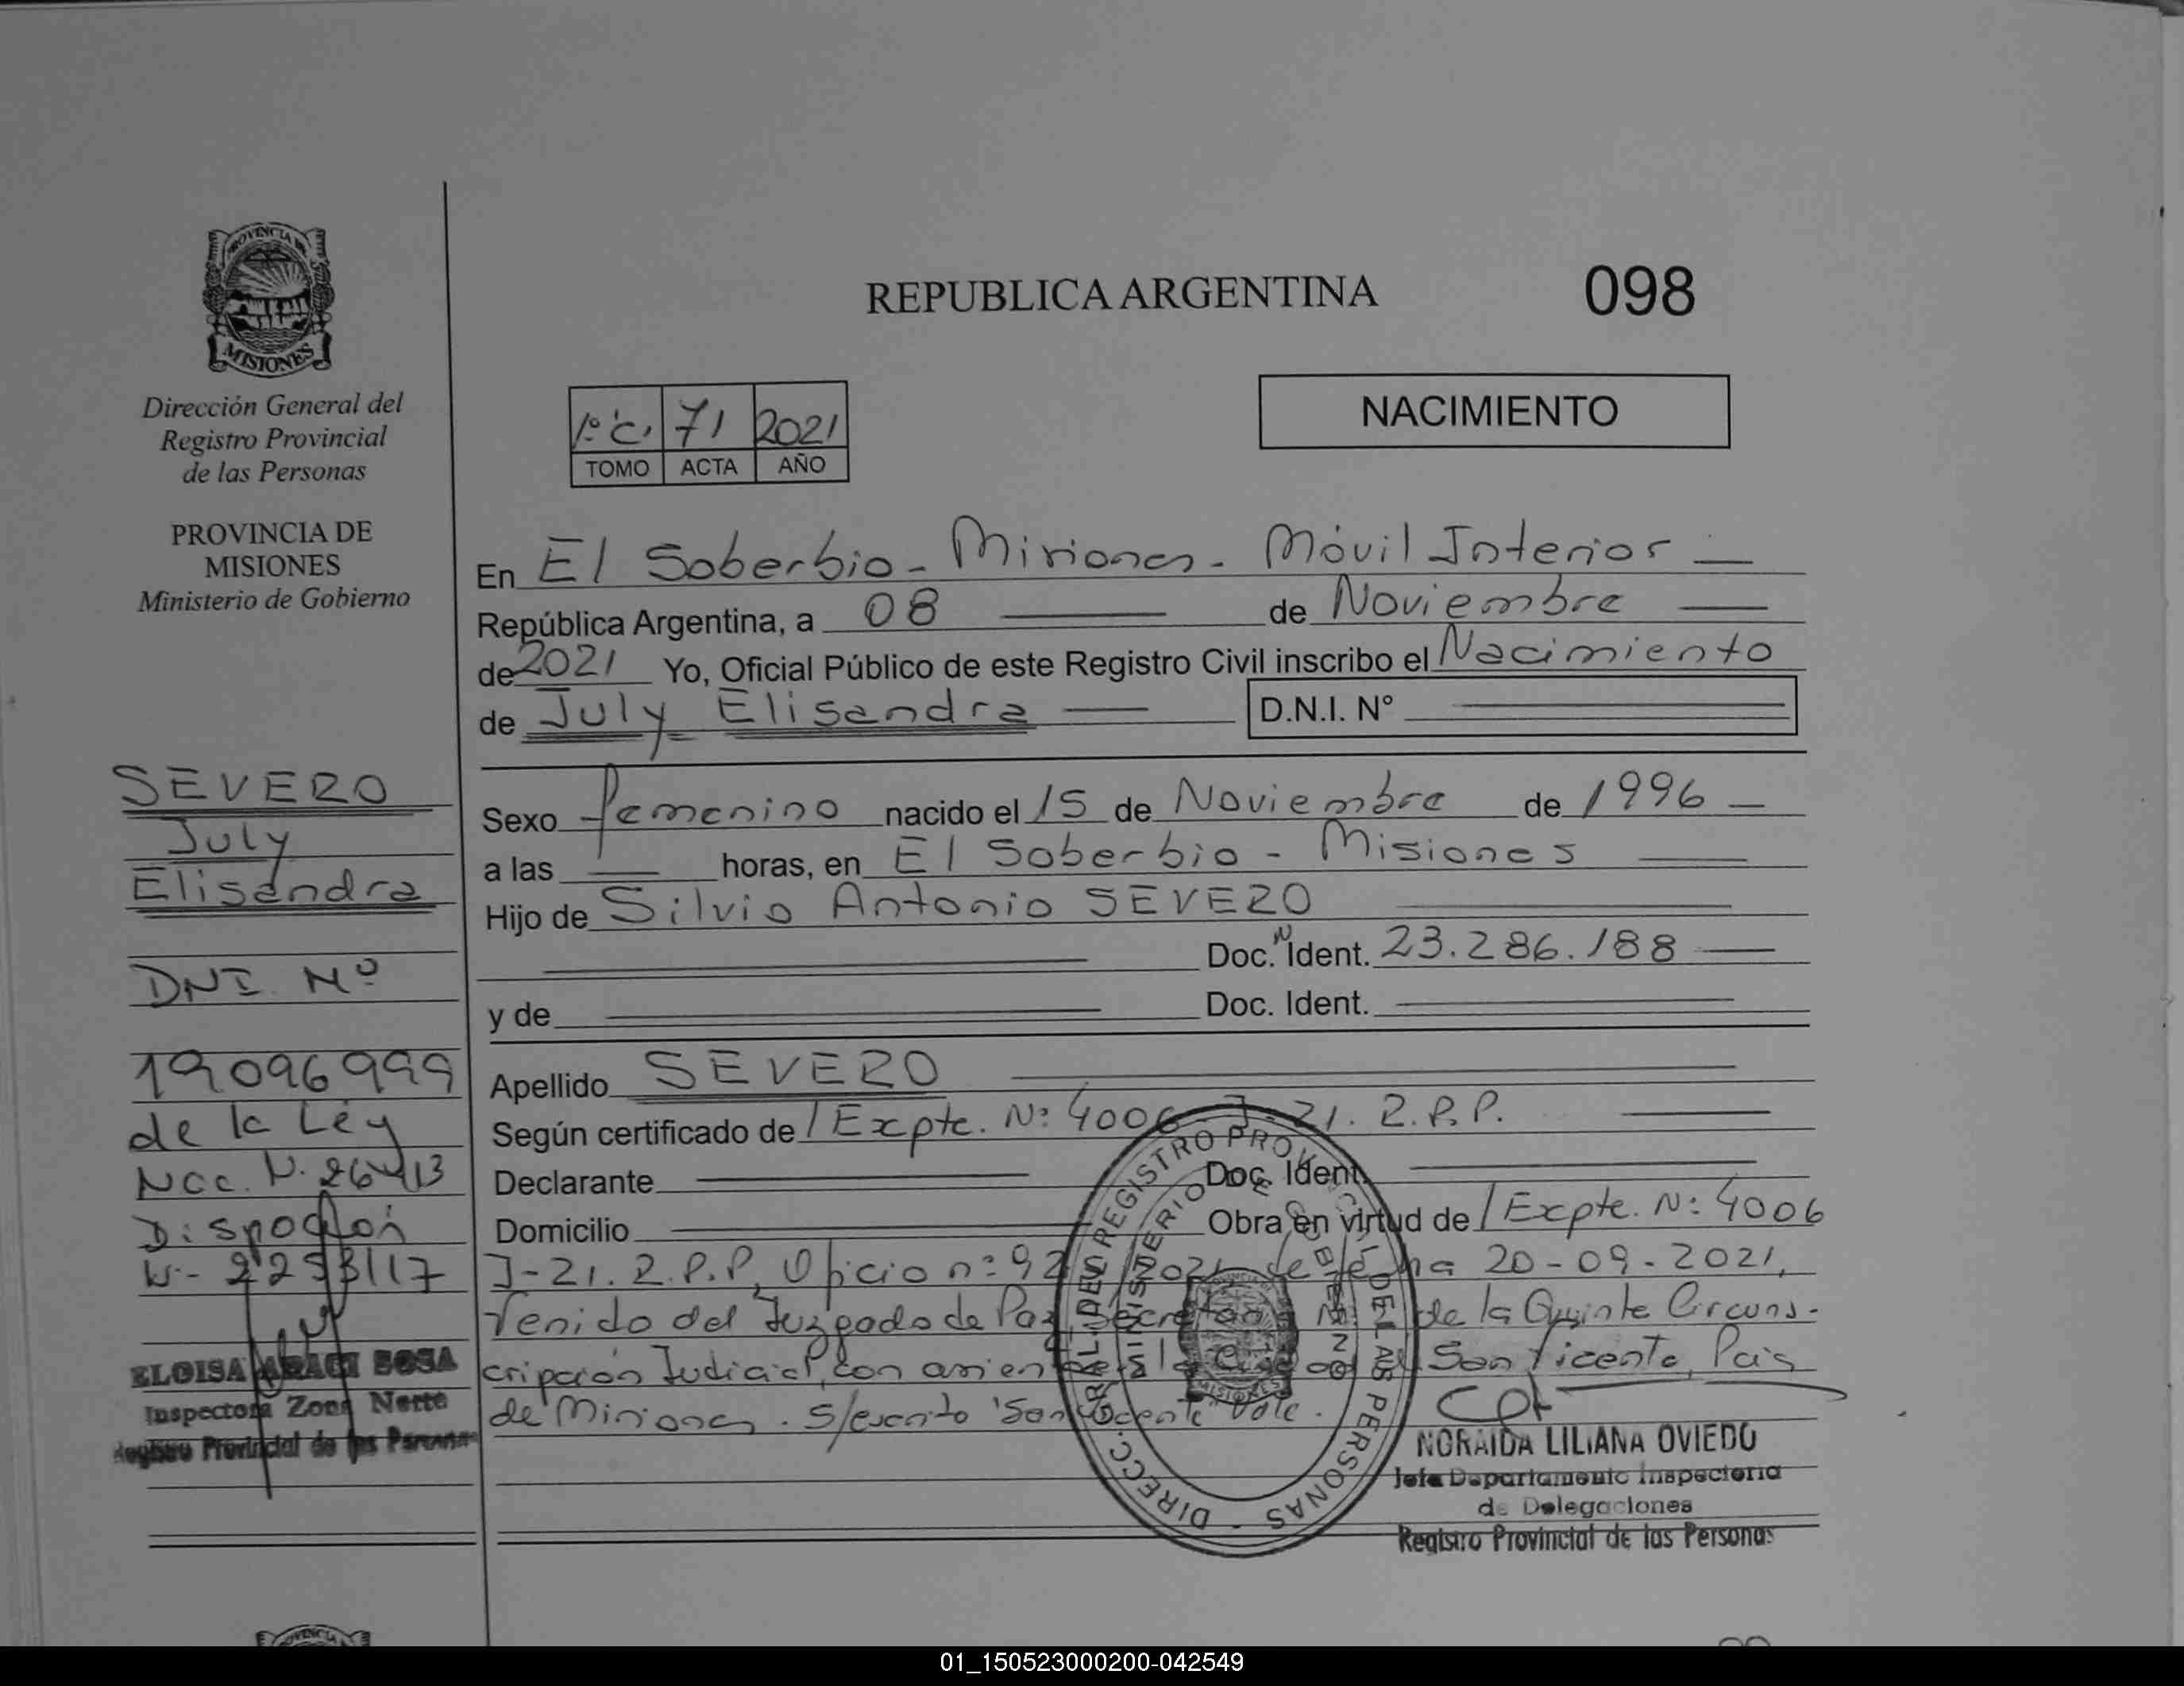 PROVINCIA DE
MISIONES
Dirección General del
Registro Provincial
de las Personas
PROVINCIA DE
MISIONES
Ministerio de Gobierno
SEVERO
July
Elisandra
DNI Nº
19096999
de la Ley
Nac. N. 26413
Disposición
N- 2253/17
ELOISA ARACI SOSA
Inspectora Zona Norte
Registro Provincial de las Personas
REPUBLICA ARGENTINA
098
1º C. 71 2021
TOMO ACTA AÑO
NACIMIENTO
En El Soberbio - Misiones - Móvil Interior
República Argentina, a 08 de Noviembre
de 2021 Yo, Oficial Público de este Registro Civil inscribo el Nacimiento
de July Elisandra D.N.I. Nº
Sexo femenino nacido el 15 de Noviembre de 1996
a las horas, en El Soberbio - Misiones
Hijo de Silvio Antonio SEVERO
Doc. N Ident. 23.286.188
y de Doc. Ident.
Apellido SEVERO
Según certificado de / Expte. Nº 4006 - J-21. R.P.P.
Declarante Doc. Ident.
Domicilio Obra en virtud de / Expte. Nº 4006
J-21. R.P.P, Oficio nº 92 /2021 de fecha 20-09-2021,
venido del Juzgado de Paz, de la Quinta Circuns-
cripción Judicial, con asiento San Vicente, Pcia
de Misiones. S/escrito "San Vicente" Vale.
DIRECC. GRAL. DEL REGISTRO PROVINCIAL DE LAS PERSONAS
MINISTERIO DE GOBIERNO
MISIONES
NORAIDA LILIANA OVIEDO
Jefa Departamento Inspectoria
de Delegaciones
Registro Provincial de las Personas
01_150523000200-042549